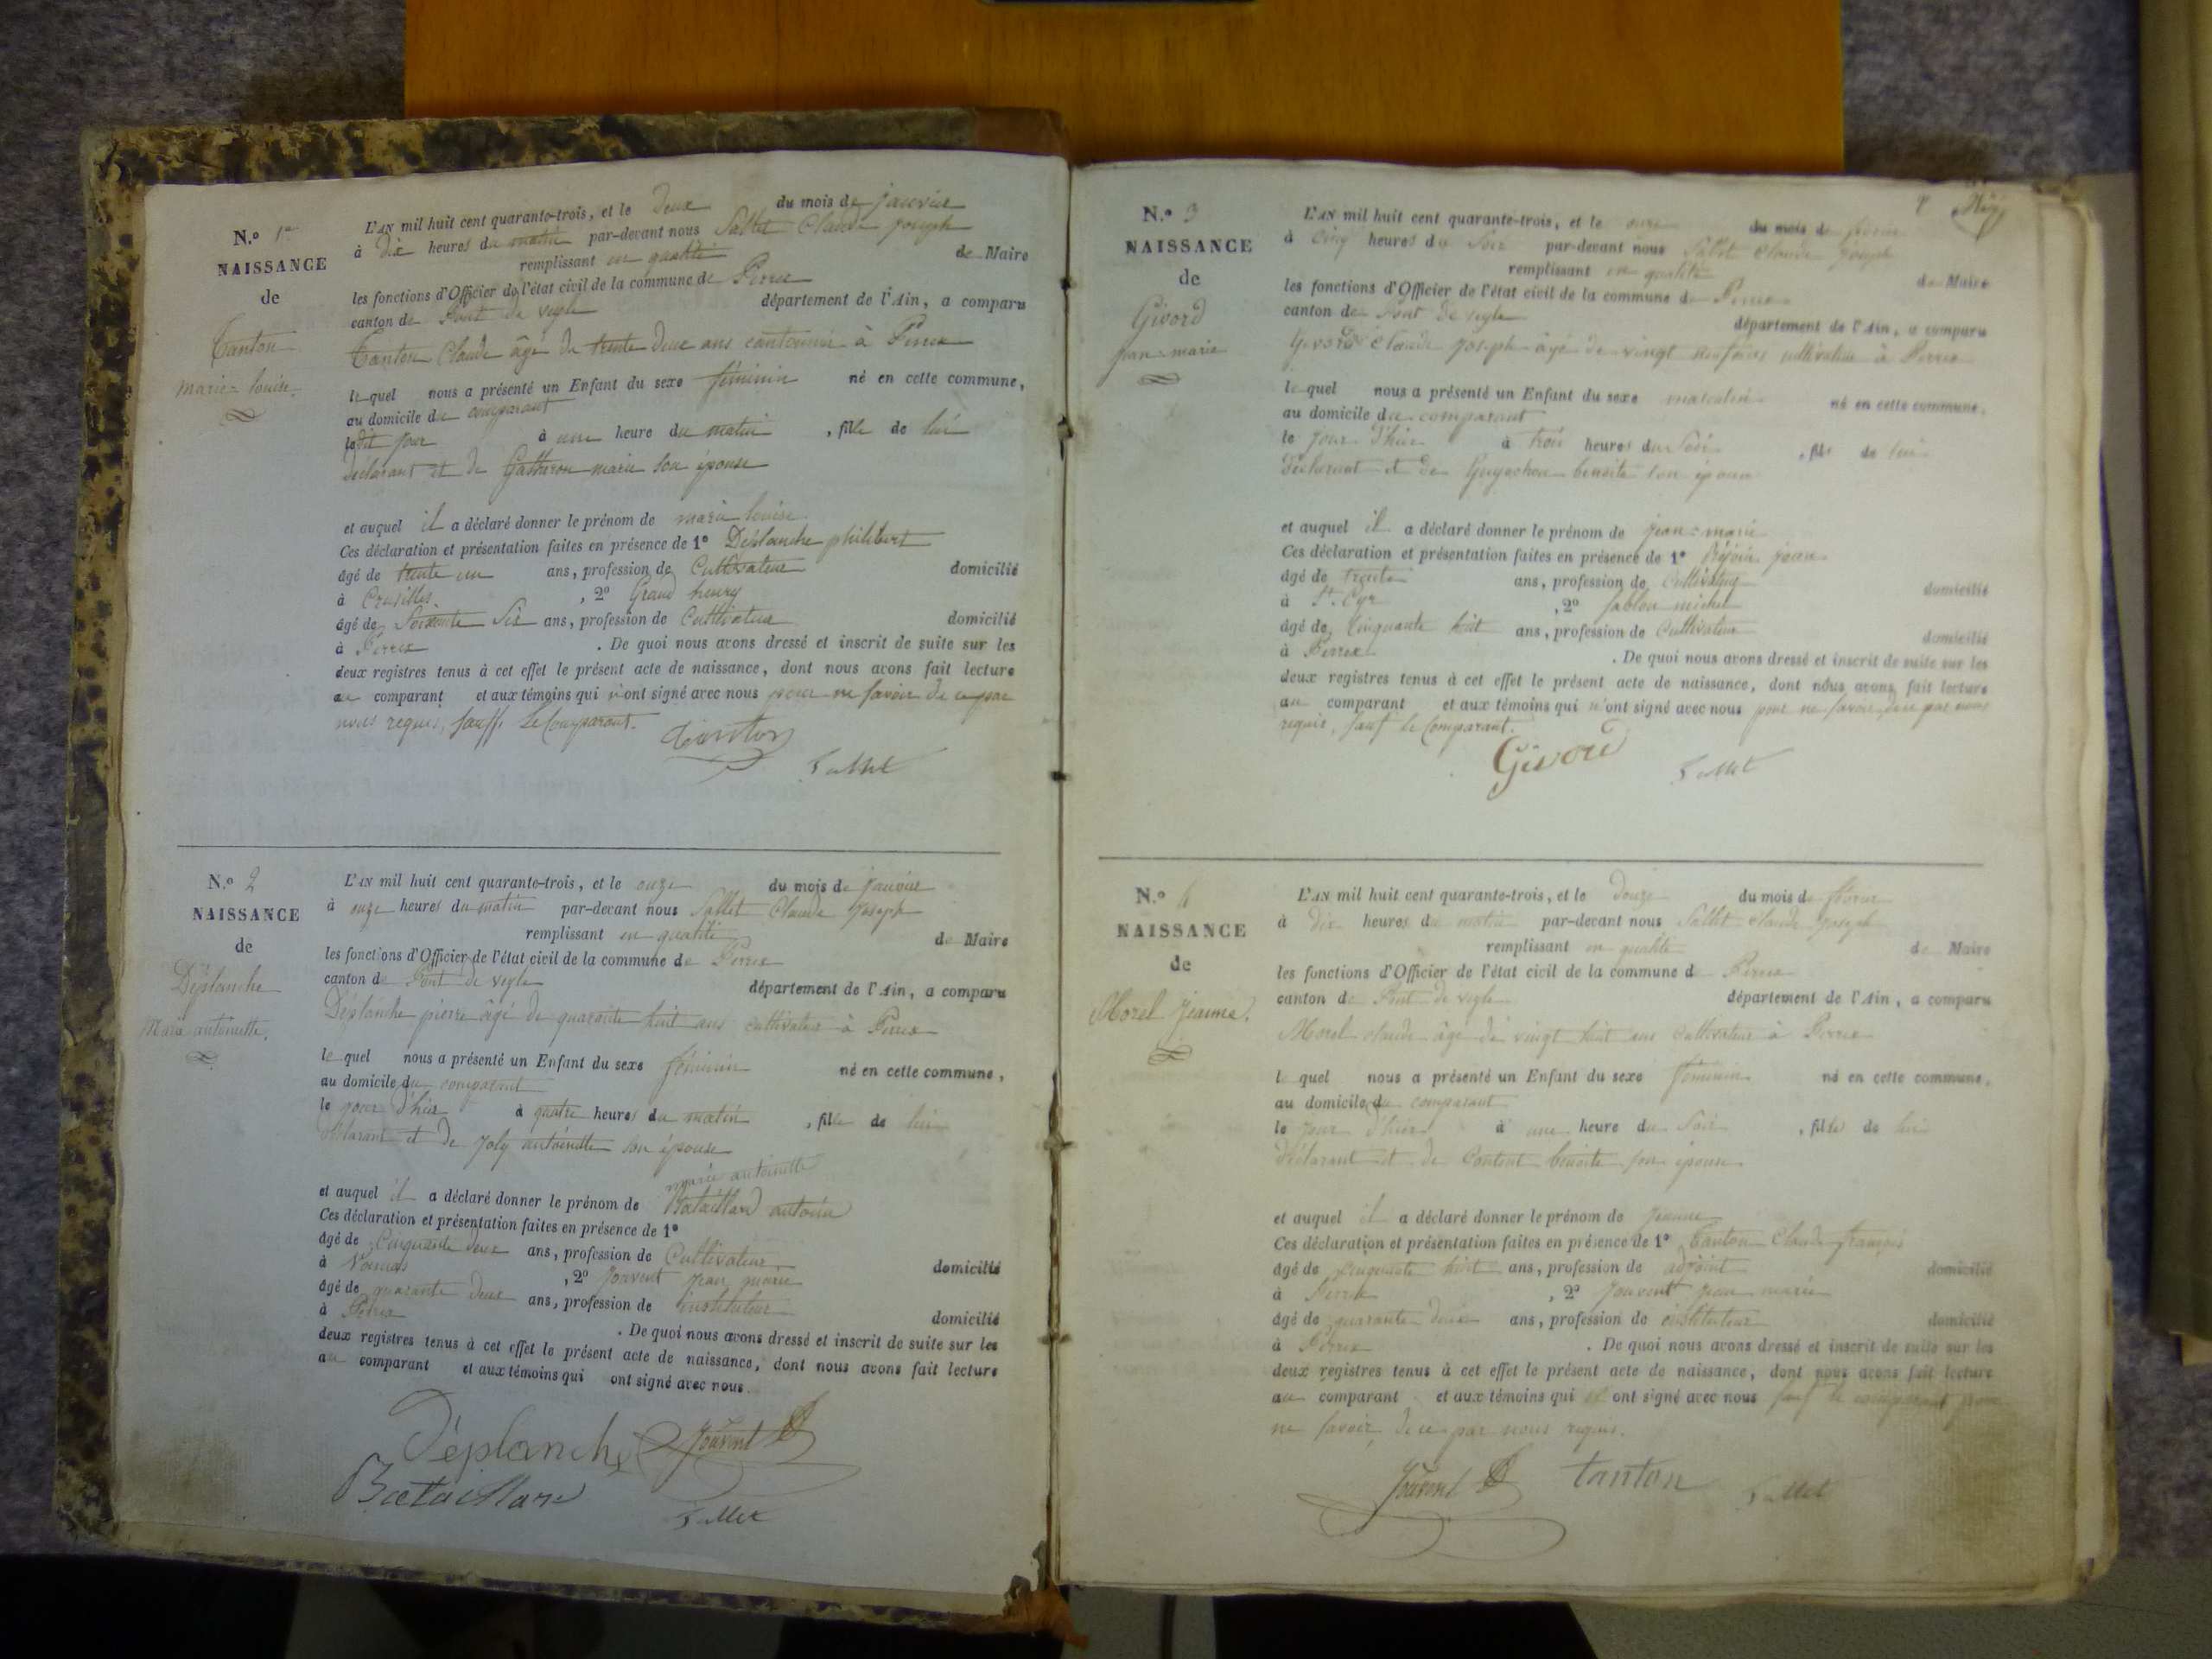 N.º 1er
NAISSANCE
de
Tanton
marie=louise.
L'AN mil huit cent quarante-trois, et le deux du mois de janvier
à dix heures du matin par-devant nous Sallet Claude joseph
remplissant en qualité de Maire
les fonctions d'Officier de l'état civil de la commune de Perrex
canton de Pont de veyle département de l'Ain, a comparu
Tanton Claude âgé de trente deux ans cantonnier à Perrex
le quel nous a présenté un Enfant du sexe féminin né en cette commune,
au domicile du comparant
ledit jour à une heure du matin, fille de lui
déclarant et de marie son épouse
et auquel il a déclaré donner le prénom de marie louise
Ces déclaration et présentation faites en présence de 1º Déplanche philibert
âgé de trente un ans, profession de Cultivateur domicilié
à Crusilles, 2º Grand henry
âgé de Soixante Six ans, profession de Cultivateur domicilié
à Perrex. De quoi nous avons dressé et inscrit de suite sur les
deux registres tenus à cet effet le présent acte de naissance, dont nous avons fait lecture
au comparant et aux témoins qui n'ont signé avec nous pour ne savoir de ce par
nous requis, sauff Le Comparant.
Tanton
Sallet
N.º 2
NAISSANCE
de
Déplanche
Marie antoinette.
L'AN mil huit cent quarante-trois, et le onze du mois de janvier
à onze heures du matin par-devant nous Sallet Claude joseph
remplissant en qualité de Maire
les fonctions d'Officier de l'état civil de la commune de Perrex
canton de Pont de veyle département de l'Ain, a comparu
Déplanche pierre âgé de quarante huit ans cultivateur à Perrex
le quel nous a présenté un Enfant du sexe féminin né en cette commune,
au domicile du comparant
le jour d'hier à quatre heures du matin, fille de lui
déclarant et de joly antoinette son épouse
marie antoinette
et auquel il a déclaré donner le prénom de Bataillard antoine
Ces déclaration et présentation faites en présence de 1º
âgé de Cinquante deux ans, profession de Cultivateur domicilié
à, 2º jouvent jean marie
âgé de quarante deux ans, profession de instituteur domicilié
à Perrex. De quoi nous avons dressé et inscrit de suite sur les
deux registres tenus à cet effet le présent acte de naissance, dont nous avons fait lecture
au comparant et aux témoins qui ont signé avec nous.
Déplanche Jouvent
Bataillard
Sallet
N.º 3
NAISSANCE
de
Givord
jean=marie
L'AN mil huit cent quarante-trois, et le onze du mois de février
à cinq heures du Soir par-devant nous Sallet Claude joseph
remplissant en qualité de Maire
les fonctions d'Officier de l'état civil de la commune de Perrex
canton de Pont de veyle département de l'Ain, a comparu
Givord Claude joseph âgé de vingt neuf ans cultivateur à Perrex
le quel nous a présenté un Enfant du sexe masculin né en cette commune,
au domicile du comparant
le jour d'hier à trois heures du Soir, fils de lui
déclarant et de benoite son épouse
et auquel il a déclaré donner le prénom de jean=marie
Ces déclaration et présentation faites en présence de 1º jean
âgé de trente ans, profession de Cultivateur domicilié
à St. Cyr, 2º Sablon michel
âgé de Cinquante huit ans, profession de Cultivateur domicilié
à Perrex. De quoi nous avons dressé et inscrit de suite sur les
deux registres tenus à cet effet le présent acte de naissance, dont nous avons fait lecture
au comparant et aux témoins qui n'ont signé avec nous pour ne savoir, de ce par nous
requis, sauf le Comparant.
Givord
Sallet
N.º 4
NAISSANCE
de
Morel jeanne.
L'AN mil huit cent quarante-trois, et le douze du mois de février
à dix heures du matin par-devant nous Sallet Claude joseph
remplissant en qualité de Maire
les fonctions d'Officier de l'état civil de la commune d Perrex
canton de Pont de veyle département de l'Ain, a comparu
Morel claude âgé de vingt huit ans cultivateur à Perrex
le quel nous a présenté un Enfant du sexe féminin né en cette commune,
au domicile du comparant
le jour d'hier à une heure du Soir, fille de lui
déclarant et de Content benoite son épouse
et auquel il a déclaré donner le prénom de jeanne
Ces déclaration et présentation faites en présence de 1º Tanton Claude françois
âgé de cinquante huit ans, profession de adjoint domicilié
à Perrex, 2º Jouvent jean marie
âgé de quarante deux ans, profession de instituteur domicilié
à Perrex. De quoi nous avons dressé et inscrit de suite sur les
deux registres tenus à cet effet le présent acte de naissance, dont nous avons fait lecture
au comparant et aux témoins qui ont signé avec nous sauf le comparant pour
ne savoir, de ce par nous requis.
Jouvent tanton Sallet